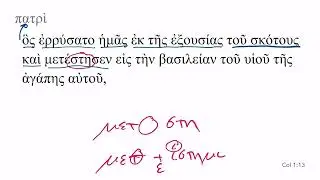 πατρὶ
ὃς ἐρρύσατο ἡμᾶς ἐκ τῆς ἐξουσίας τοῦ σκότους
καὶ μετέστησεν εἰς τὴν βασιλείαν τοῦ υἱοῦ τῆς
ἀγάπης αὐτοῦ,
Col 1:13